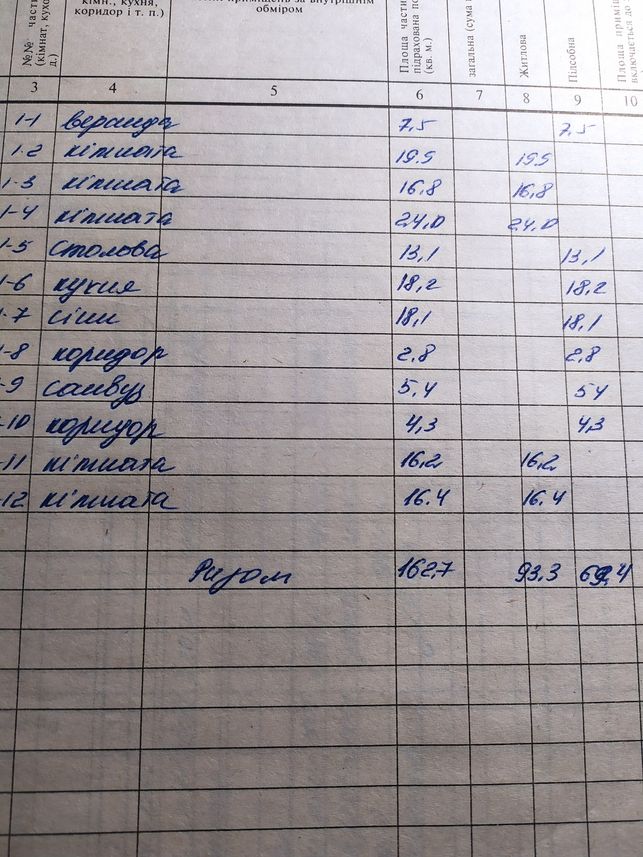 №№ части (кімнат, кухо д.)
кімн., кухня, коридор і т. п.)
приміщень за внутрішнім обміром
Площа части підрахована по (кв. м.)
загальна (сума
Житлова
Підсобна
Площа примі включається до
3 4 5 6 7 8 9 10
1-1 веранда 7,5 7,5
1-2 кімната 19.5 19.5
1-3 кімната 16,8 16,8
1-4 кімната 24,0 24,0
1-5 столова 13,1 13,1
1-6 кухня 18,2 18,2
1-7 сіни 18,1 18,1
1-8 коридор 2.8 2,8
1-9 санвуз 5.4 54
-10 коридор 4,3 4,3
-11 кімната 16,2 16,2
-12 кімната 16.4 16.4
Разом 162,7 93.3 69,4